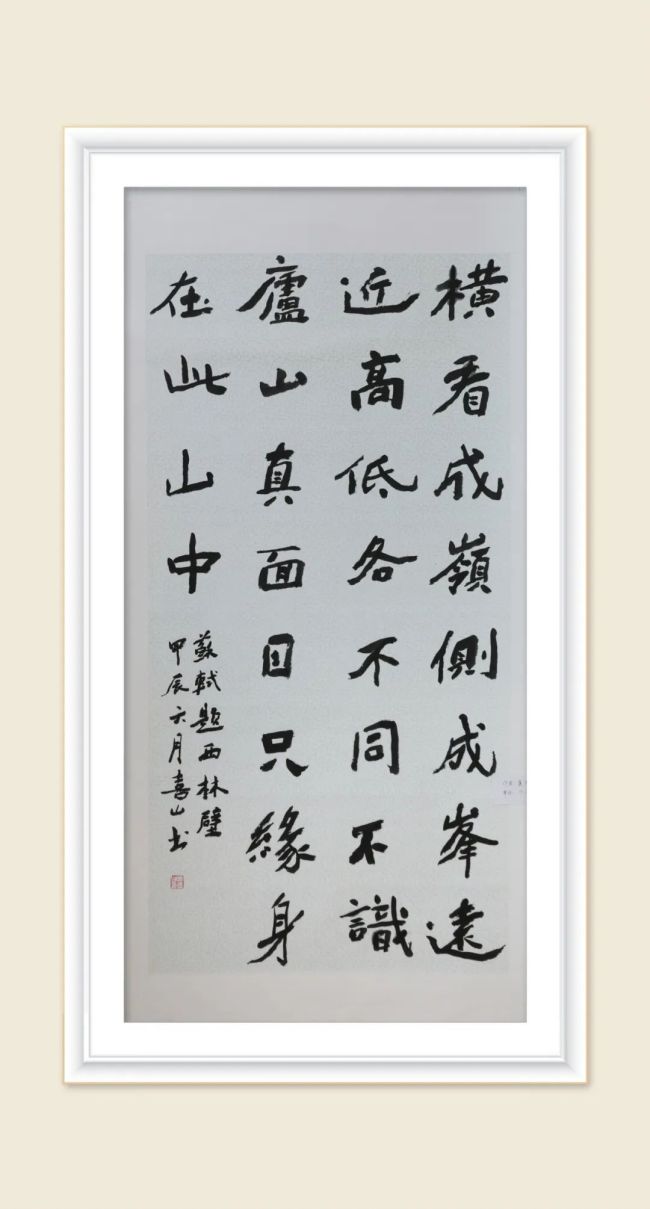 橫看成嶺側成峯遠
近高低各不同不識
廬山真面目只緣身
在此山中
蘇軾題西林壁
甲辰六月喜山书